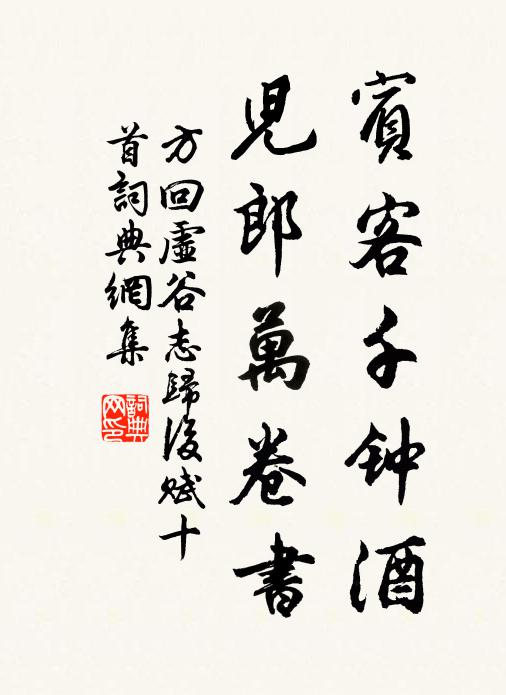 賓客千钟酒
児郎萬卷書
方回虛谷志歸後賦十
首詞典網集
詞典
网印